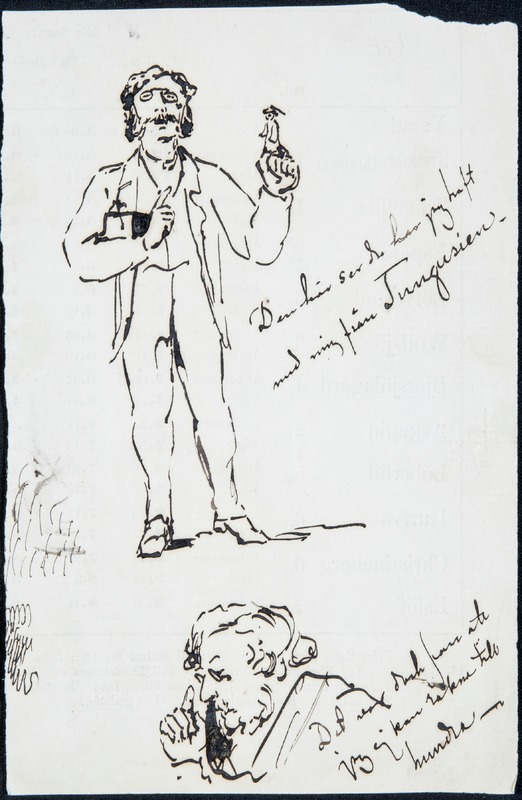 Den här ser du har jag haft
med mig från Tungusien.
Det var dock fan att
jag ej kan räkna till
hundra —